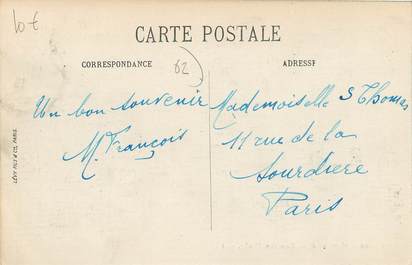 10 €
CARTE POSTALE
CORRESPONDANCE
62
ADRESSE
Un bon souvenir
M. François
Mademoiselle S Thomas
11 rue de la
Sourdiere
Paris
LÉVY FILS & Cie, PARIS.